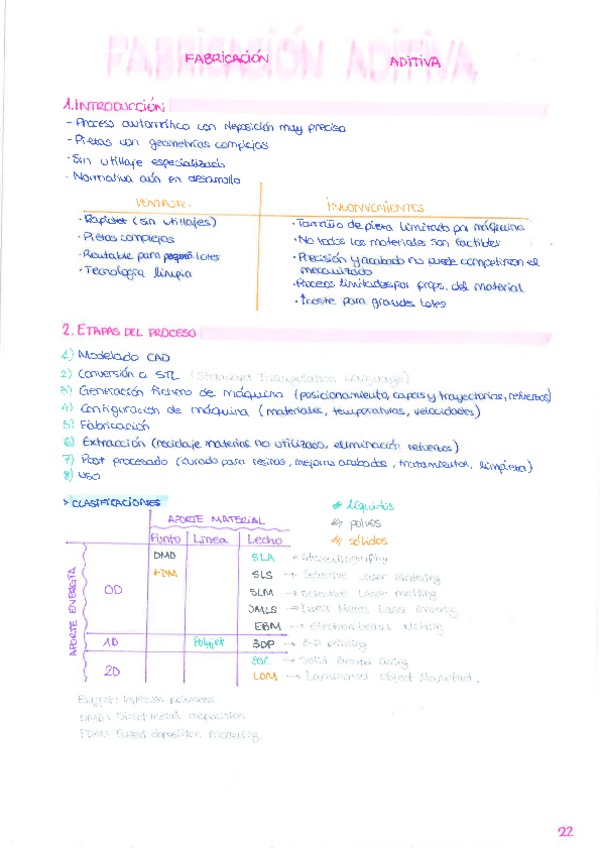 FABRICACIÓN ADITIVA
FABRICACIÓN ADITIVA
1. INTRODUCCIÓN
- Proceso automático con deposición muy precisa
- Piezas con geometrías complejas
- Sin utillaje especializado
- Normativa aún en desarrollo
VENTAJAS: INCONVENIENTES
· Rapidez (sin utillajes) · Tamaño de pieza limitado por máquina
· Piezas complejas · No todos los materiales son factibles
· Rentable para pequeños lotes · Precisión y acabado no puede competir con el mecanizado
· Tecnología limpia · Procesos limitados por props. del material
· Coste para grandes lotes
2. ETAPAS DEL PROCESO
1) Modelado CAD
2) Conversión a STL (Standard Language)
3) Generación fichero de máquina (posicionamiento, capas y trayectorias, refuerzos)
4) Configuración de máquina (materiales, temperaturas, velocidades)
5) Fabricación
6) Extracción (reciclaje material no utilizado, eliminación refuerzos)
7) Post procesado (curado para resinas, mejora acabados, tratamientos, limpieza)
8) USO
> CLASIFICACIONES # líquidos
APORTE MATERIAL # polvos
Punto Línea Lecho # sólidos
APORTE ENERGÍA
0D DMD SLA → Stereolithography
FDM SLS → Selective Laser Sintering
SLM → Selective Laser melting
DMLS → Direct Metal Laser Sintering
EBM → Electron beam Melting
1D Polyjet 3DP → 3-D printing
2D SGC → Solid Ground Curing
LOM → Laminated Object Manufact.
Polyjet: Inyección polímeros
DMD: Direct metal deposition
FDM: Fused deposition modeling.
22